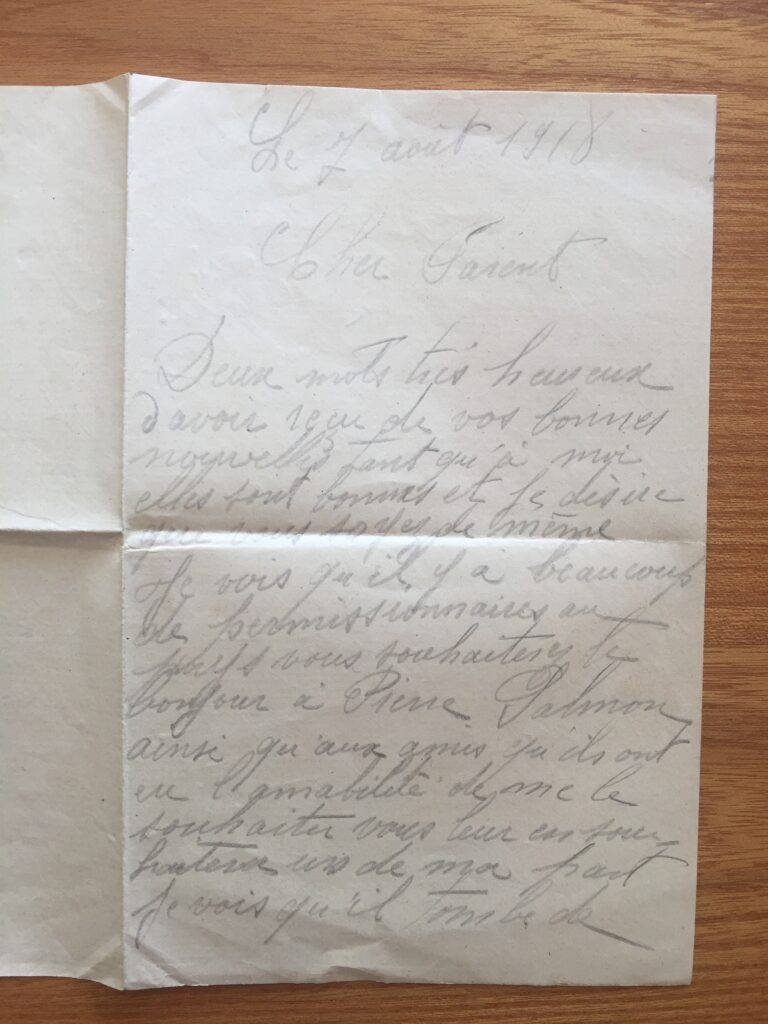 Le 7 août 1918
Cher Parent
Deux mots très heureux
d'avoir reçu de vos bonnes
nouvelles tant qu'à moi
elles sont bonnes et je désire
que vous soyez de même
Je vois qu'il y a beaucoup
de permissionnaires au
pays vous souhaiterez le
bonjour à Pierre Palmon
ainsi qu'aux amis qu'ils ont
eu l'amabilité de me le
souhaiter vous leur en sou
haiterez un de ma part
Je vois qu'il tombe de